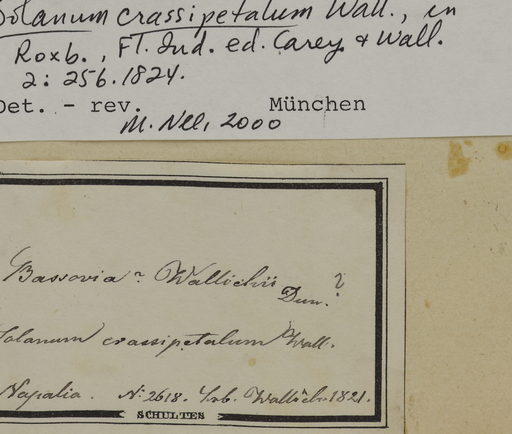 Solanum crassipetalum Wall., in
Roxb., Fl. Ind. ed. Carey & Wall.
2: 256. 1824.
Det. - rev. München
M. Nee, 2000
Bassovia ? Wallichii Dun. ?
Solanum crassipetalum Wall.
Napalia. N: 2618. Wallich 1821.
SCHULTES